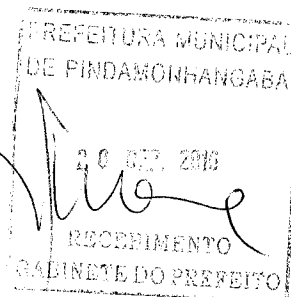 PREFEITURA MUNICIPAL
DE PINDAMONHANGABA
20 SET. 2016
RECEBIMENTO
GABINETE DO PREFEITO